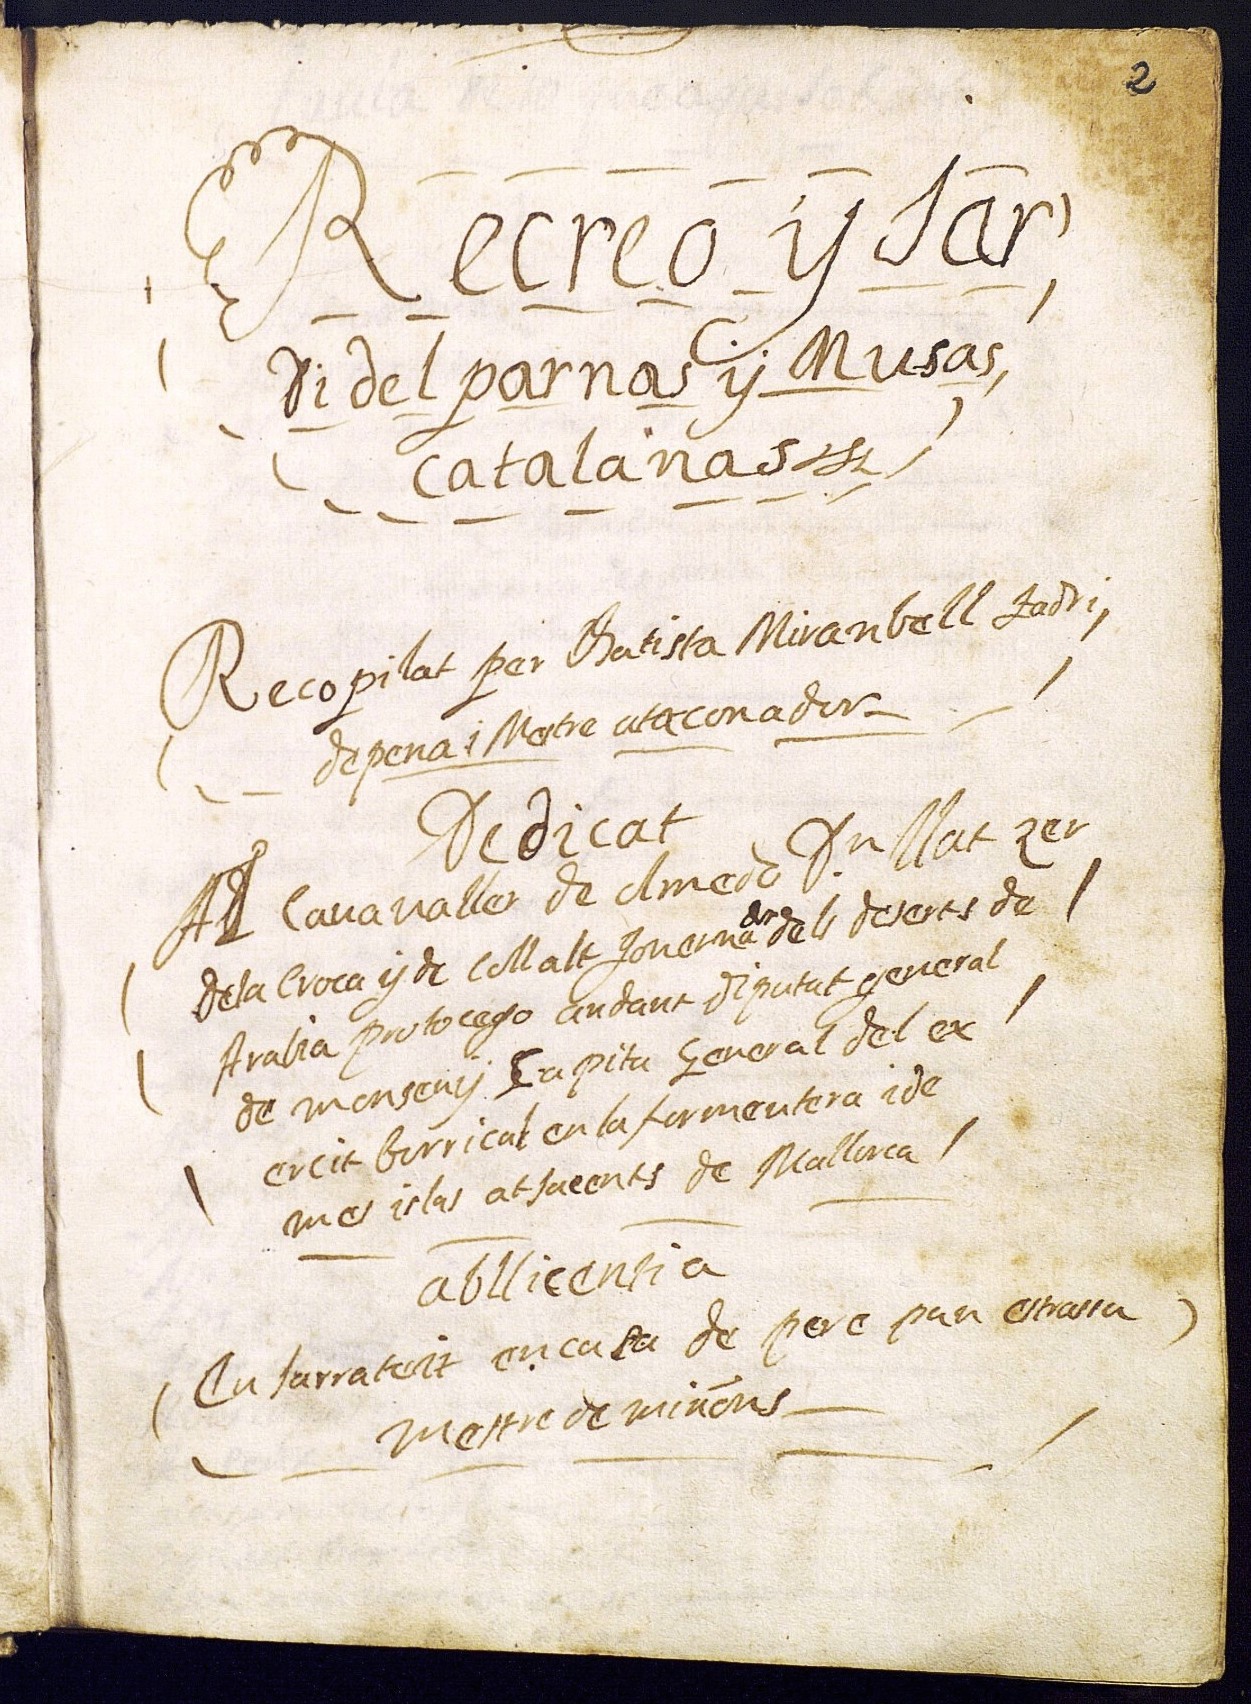 2
Recreo y Jar
di del parnas y Musas
catalanas
Recopilat per Batista Miranbell Jadri
de pena i Mestre ataconador
Dedicat
Al Cauavaller de Olmedo Dn Llat zer
dela Croca y de Collalt Governador dels deserts de
Arabia protocego andant diputat general
de monseny Capita General del ex
ercit borrical en la formentera i de
mes islas atjacents de Mallorca
ab llicentia
En Sarrateix en casa de pere pau estrassa
mestre de miñons